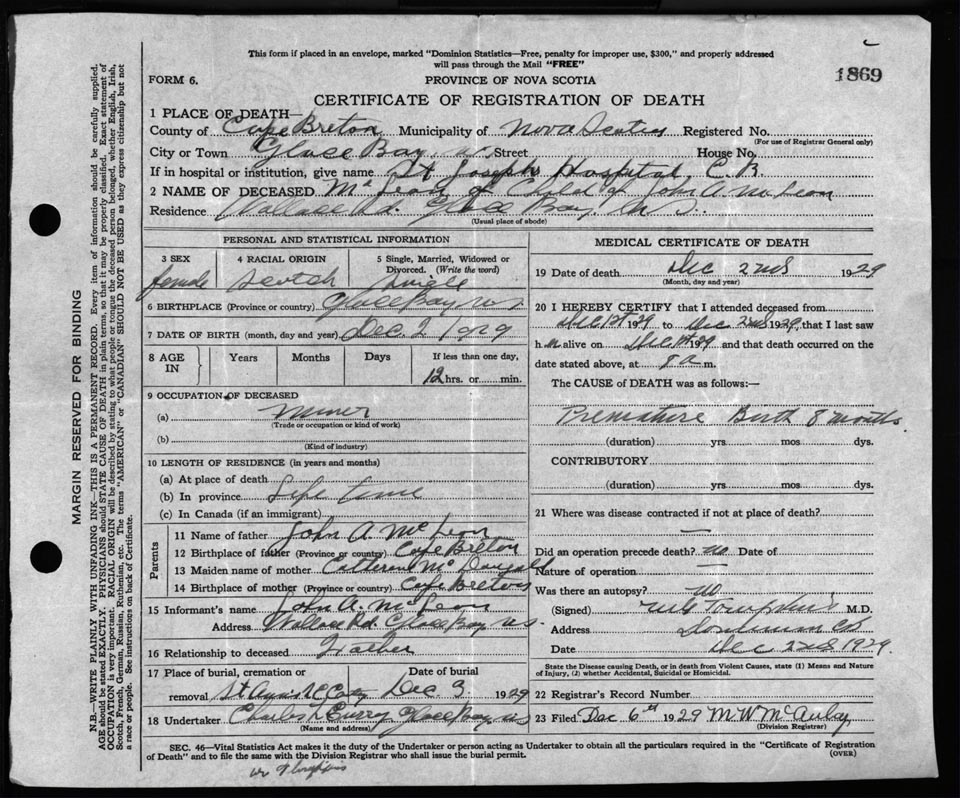 This form if placed in an envelope, marked "Dominion Statistics—Free, penalty for improper use, $300," and properly addressed
will pass through the Mail "FREE"
FORM 6.
PROVINCE OF NOVA SCOTIA
1869
CERTIFICATE OF REGISTRATION OF DEATH
1 PLACE OF DEATH—
County of Cape Breton Municipality of Nova Scotia Registered No.
(For use of Registrar General only)
City or Town Glace Bay, Street House No.
If in hospital or institution, give name St Joseph Hospital, C. B.
2 NAME OF DECEASED Child of John A. McLean
Residence Wallace Rd. Glace Bay, N. S.
(Usual place of abode)
PERSONAL AND STATISTICAL INFORMATION
3 SEX
female
4 RACIAL ORIGIN
Scotch
5 Single, Married, Widowed or
Divorced. (Write the word)
Single
6 BIRTHPLACE (Province or country) Glace Bay, N. S.
7 DATE OF BIRTH (month, day and year) Dec. 2 1929
8 AGE
IN
Years
Months
Days
If less than one day,
12 hrs. or min.
9 OCCUPATION OF DECEASED
(a) Miner
(Trade or occupation or kind of work)
(b)
(Kind of industry)
10 LENGTH OF RESIDENCE (in years and months)
(a) At place of death
(b) In province Life time
(c) In Canada (if an immigrant)
Parents
11 Name of father John A. McLean
12 Birthplace of father (Province or country) Cape Breton
13 Maiden name of mother Catherine McDougall
14 Birthplace of mother (Province or country) Cape Breton
15 Informant's name John A. McLean
Address Wallace Rd. Glace Bay N.S.
16 Relationship to deceased Father
17 Place of burial, cremation or Date of burial
removal Dec 3 1929
18 Undertaker Charles Curry Glace Bay N.S.
(Name and address)
MEDICAL CERTIFICATE OF DEATH
19 Date of death Dec 2nd 1929
(Month, day and year)
20 I HEREBY CERTIFY that I attended deceased from
Dec 1st 1929 to Dec 2nd 1929, that I last saw
h alive on Dec 1st 1929 and that death occurred on the
date stated above, at 8 a m.
The CAUSE of DEATH was as follows:—
Premature Birth 8 months
(duration) yrs. mos dys.
CONTRIBUTORY
(duration) yrs. mos. dys.
21 Where was disease contracted if not at place of death?
—
Did an operation precede death? no Date of
Nature of operation —
Was there an autopsy? no
(Signed) Tompkins M.D.
Address Dominion CB
Date Dec 2nd 1929
State the Disease causing Death, or in death from Violent Causes, state (1) Means and Nature
of Injury, (2) whether Accidental, Suicidal or Homicidal.
22 Registrar's Record Number
23 Filed Dec 6th 1929 M W McAuley
(Division Registrar)
SEC. 46—Vital Statistics Act makes it the duty of the Undertaker or person acting as Undertaker to obtain all the particulars required in the "Certificate of Registration
of Death" and to file the same with the Division Registrar who shall issue the burial permit.
(OVER)
MARGIN RESERVED FOR BINDING
N.B.—WRITE PLAINLY WITH UNFADING INK—THIS IS A PERMANENT RECORD. Every item of information should be carefully supplied.
AGE should be stated EXACTLY. PHYSICIANS should STATE CAUSE OF DEATH in plain terms, so that it may be properly classified. Exact statement of
OCCUPATION is very important. RACIAL ORIGIN will be described by stating to what people or tongue the deceased person belonged, whether English, Irish,
Scotch, French, German, Russian, Ruthenian, etc. The terms "AMERICAN" or "CANADIAN" SHOULD NOT BE USED as they express citizenship but not
a race or people. See instructions on back of Certificate.